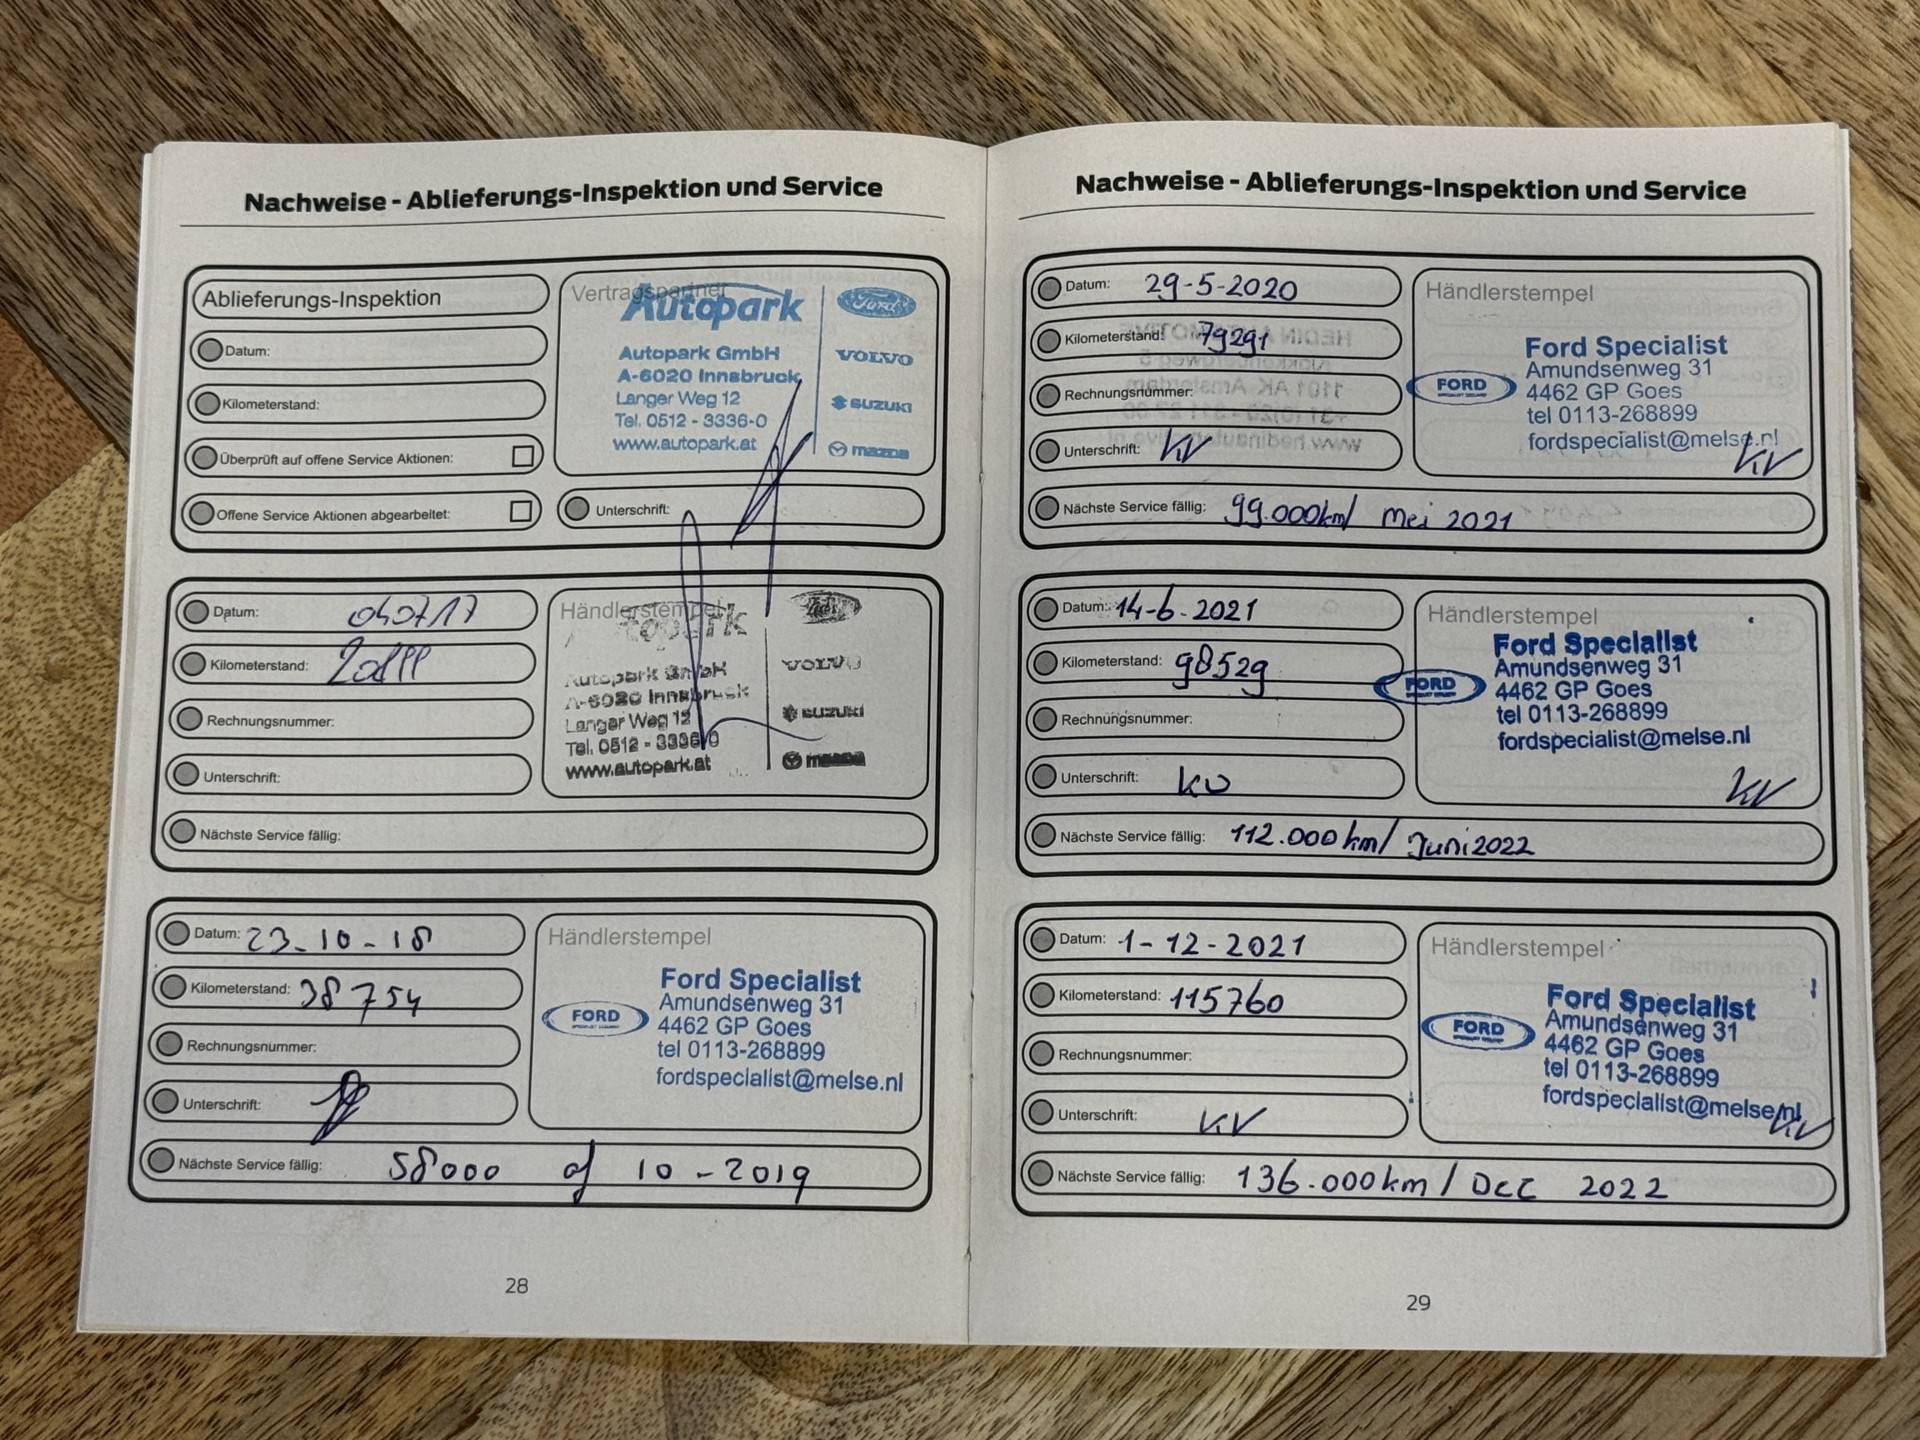 Nachweise - Ablieferungs-Inspektion und Service
Ablieferungs-Inspektion
Datum:
Kilometerstand:
Überprüft auf offene Service Aktionen:
Offene Service Aktionen abgearbeitet:
Vertragspartner
Autopark
Autopark GmbH
A-6020 Innsbruck
Langer Weg 12
Tel. 0512 - 3336-0
www.autopark.at
Ford
VOLVO
SUZUKI
mazda
Unterschrift:
Datum: 040717
Kilometerstand:
Rechnungsnummer:
Unterschrift:
Händlerstempel
Autopark GmbH
A-6020 Innsbruck
Langer Weg 12
Tel. 0512 - 3336-0
www.autopark.at
Ford
VOLVO
SUZUKI
mazda
Nächste Service fällig:
Datum: 23-10-18
Kilometerstand: 38754
Rechnungsnummer:
Unterschrift:
Händlerstempel
FORD
Ford Specialist
Amundsenweg 31
4462 GP Goes
tel 0113-268899
fordspecialist@melse.nl
Nächste Service fällig: 58000 of 10-2019
28
Nachweise - Ablieferungs-Inspektion und Service
Datum: 29-5-2020
Kilometerstand: 79291
Rechnungsnummer:
Unterschrift: KV
Händlerstempel
FORD
Ford Specialist
Amundsenweg 31
4462 GP Goes
tel 0113-268899
fordspecialist@melse.nl
KV
Nächste Service fällig: 99.000km/ Mei 2021
Datum: 14-6-2021
Kilometerstand: 98529
Rechnungsnummer:
Unterschrift: KV
Händlerstempel
FORD
Ford Specialist
Amundsenweg 31
4462 GP Goes
tel 0113-268899
fordspecialist@melse.nl
KV
Nächste Service fällig: 112.000km/ Juni 2022
Datum: 1-12-2021
Kilometerstand: 115760
Rechnungsnummer:
Unterschrift: KV
Händlerstempel
FORD
Ford Specialist
Amundsenweg 31
4462 GP Goes
tel 0113-268899
fordspecialist@melse.nl
KV
Nächste Service fällig: 136.000km/ Dec 2022
29